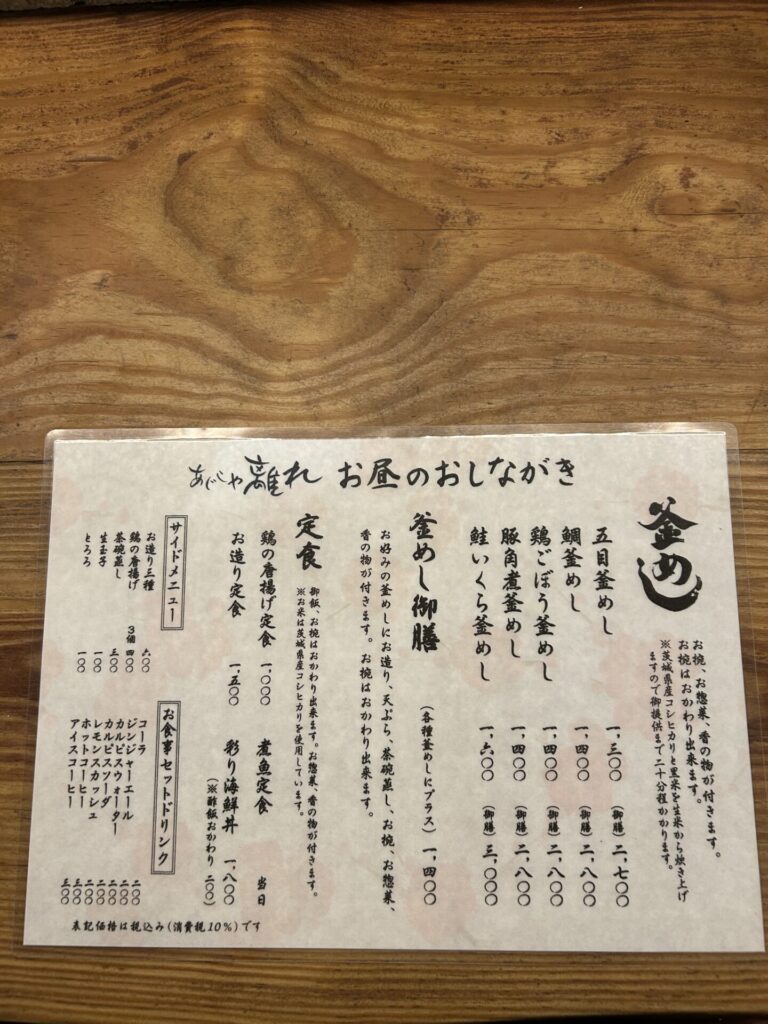 あじや離れ お昼のおしながき
釜めし
お椀、お惣菜、香の物が付きます。
お椀はおかわり出来ます。
※茨城県産コシヒカリと黒米を生米から炊き上げ
ますので御提供まで二十分程かかります。
五目釜めし 一、三〇〇 (御膳) 二、七〇〇
鯛釜めし 一、四〇〇 (御膳) 二、八〇〇
鶏ごぼう釜めし 一、四〇〇 (御膳) 二、八〇〇
豚角煮釜めし 一、四〇〇 (御膳) 二、八〇〇
鮭いくら釜めし 一、六〇〇 (御膳) 三、〇〇〇
釜めし御膳 (各種釜めしにプラス) 一、四〇〇
お好みの釜めしにお造り、天ぷら、茶碗蒸し、お椀、お惣菜、
香の物が付きます。 お椀はおかわり出来ます。
定食
御飯、お椀はおかわり出来ます。お惣菜、香の物が付きます。
※お米は茨城県産コシヒカリを使用しています。
鶏の唐揚げ定食 一、〇〇〇
お造り定食 一、五〇〇
煮魚定食 当日
彩り海鮮丼 一、八〇〇
(※酢飯おかわり 二〇〇)
サイドメニュー
お造り三種 六〇〇
鶏の唐揚げ 3個 四〇〇
茶碗蒸し 三〇〇
生玉子 一〇〇
とろろ 一〇〇
お食事セットドリンク
コーラ 二〇〇
ジンジャーエール 二〇〇
カルピスウォーター 二〇〇
カルピスソーダ 二〇〇
レモンスカッシュ 二〇〇
ホットコーヒー 三〇〇
アイスコーヒー 三〇〇
表記価格は税込み(消費税10%)です